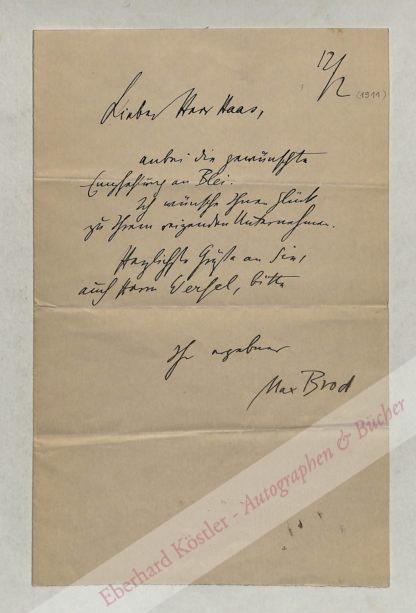 12/2 (1911)
Lieber Herr Haas,
anbei die gewünschte
Empfehlung an Blei.
Ich wünsche Ihnen Glück
zu Ihrem reizenden Unternehmen.
Herzlichste Grüße an Sie,
auch Herrn Werfel, bitte
Ihr ergebener
Max Brod
Eberhard Köstler - Autographen & Bücher